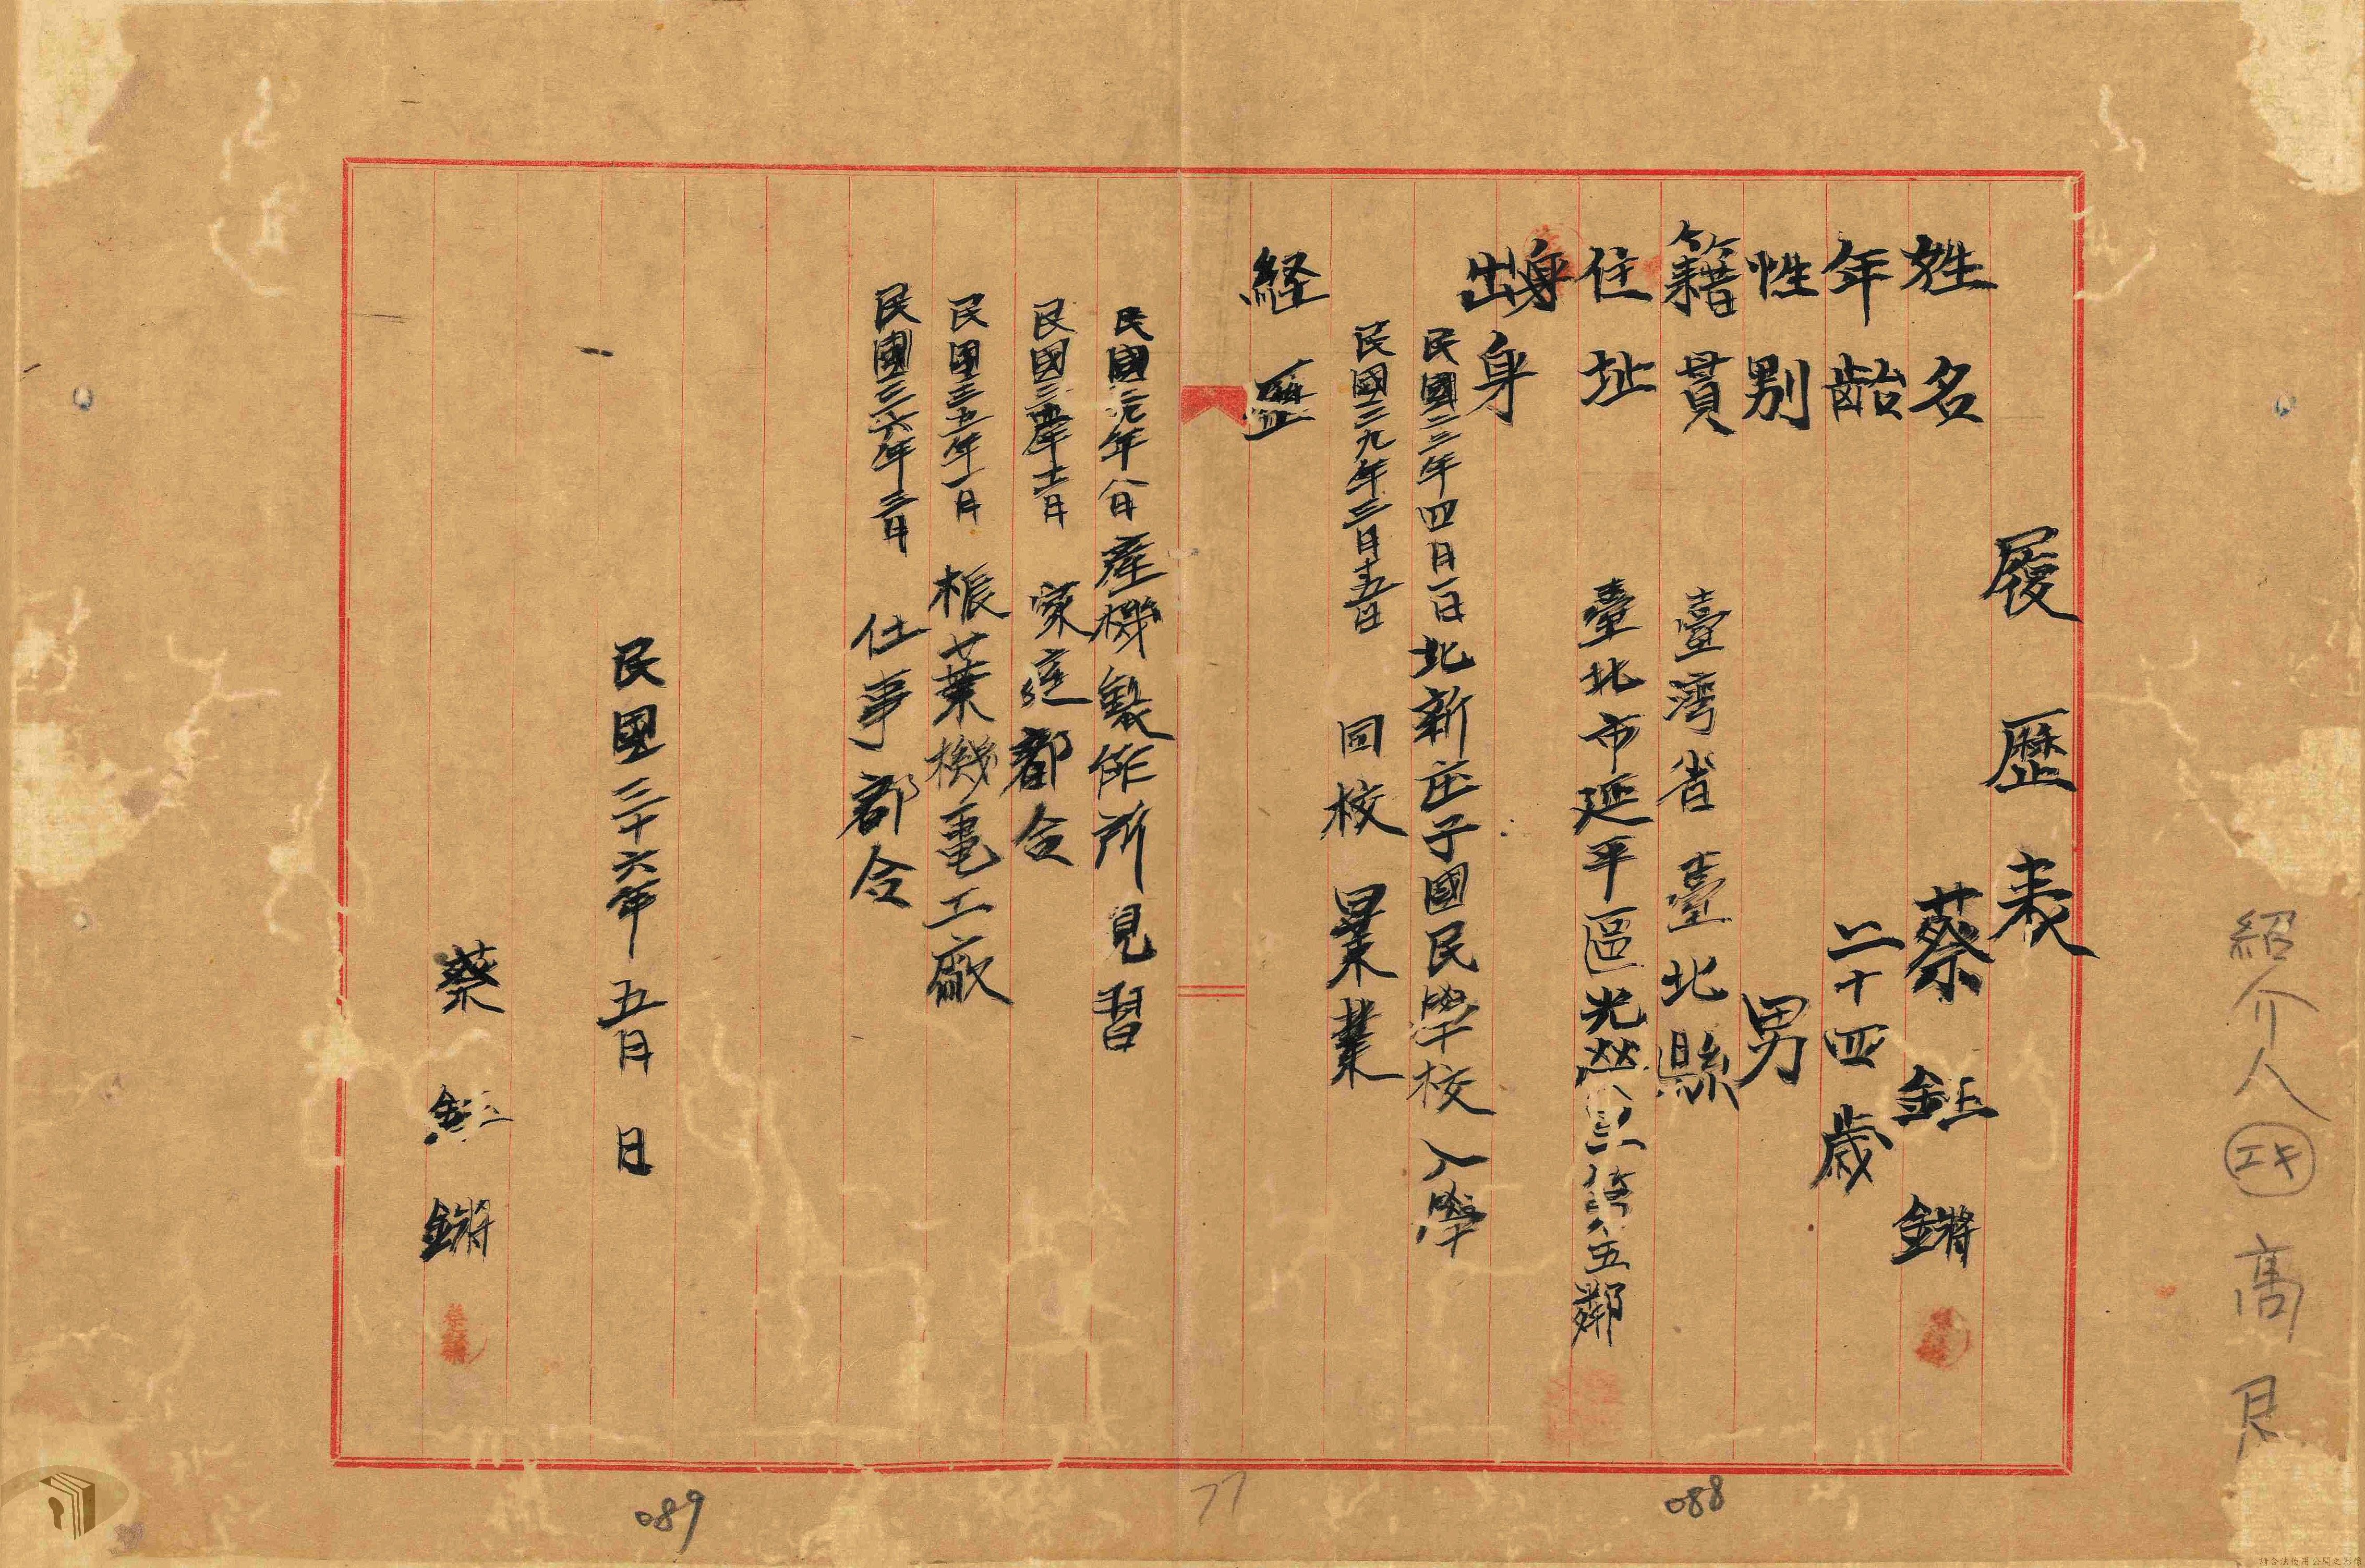 紹介人 工キ 高良
履歴表
姓名 蔡鉦鏘
年齡 二十四歲
性別 男
籍貫 臺灣省臺北縣
住址 臺北市延平區光 五鄰
出身
民國二二年四月一日 北新庄子國民學校入學
民國二九年三月十五日 同校畢業
経歷
民國 年八月 產機製作所見習
民國三四年十一月 家庭都合
民國三五年一月 振葉機電工廠
民國三六年三月 仕事都合
民國三十六年五月 日
蔡鉦鏘
088
77
089